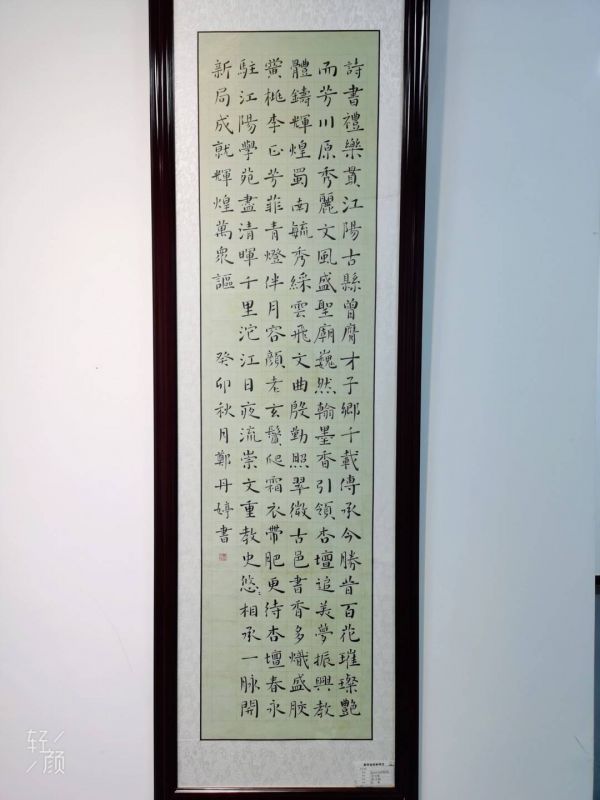 詩書禮樂貫江陽古縣曾膺才子鄉千載傳承今勝昔百花璀璨艷
而芳川原秀麗文風盛聖廟巍然翰墨香引領杏壇追美夢振興教
體鑄輝煌蜀南毓秀綵雲飛文曲殷勤照翠微古邑書香多熾盛膠
黌桃李正芳菲青燈伴月容顏老玄鬢爬霜衣帶肥更待杏壇春永
駐江陽學苑盡清暉千里沱江日夜流崇文重教史悠々相承一脉開
新局成就輝煌萬衆謳 癸卯秋月鄭丹婷書
轻颜